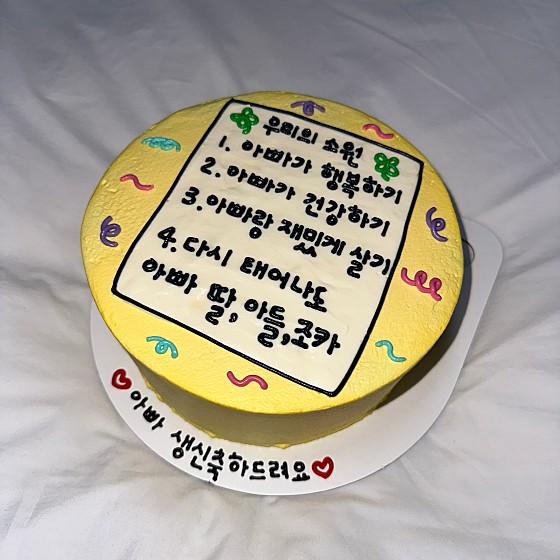 우리의 소원
1. 아빠가 행복하기
2. 아빠가 건강하기
3. 아빠랑 재밌게 살기
4. 다시 태어나도
아빠 딸, 아들, 조카
아빠 생신축하드려요